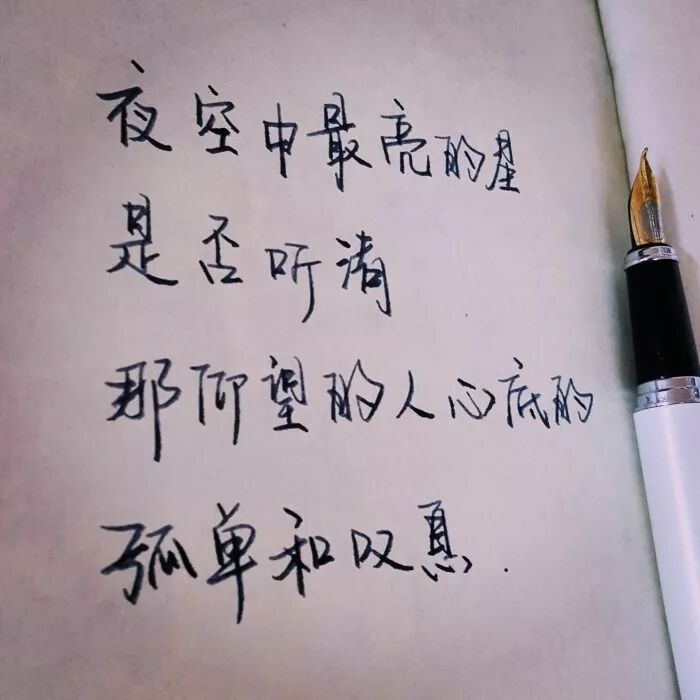 夜空中最亮的星
是否听清
那仰望的人心底的
孤单和叹息.